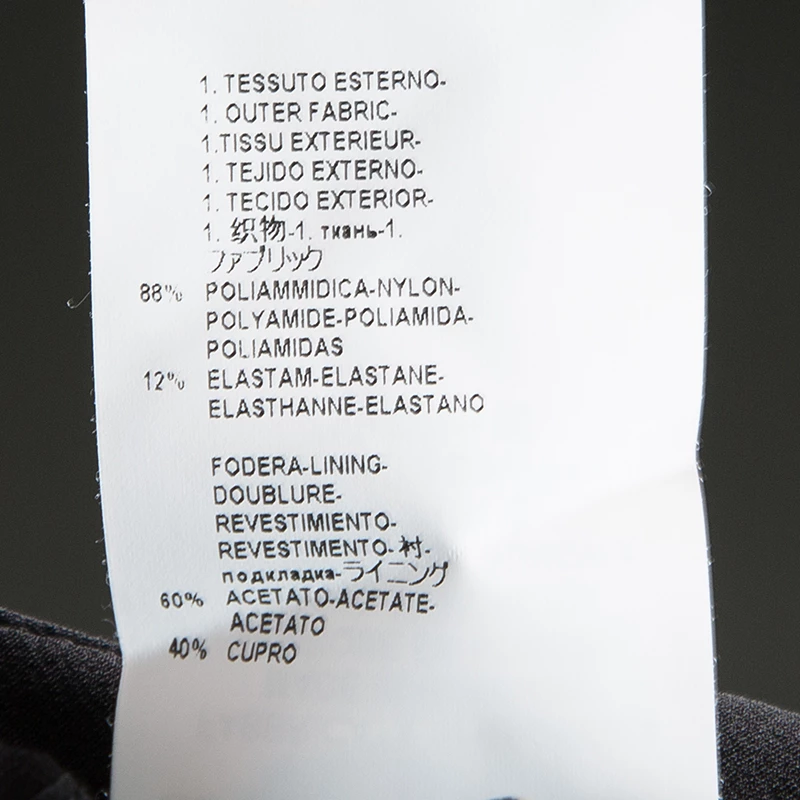 1. TESSUTO ESTERNO-
1. OUTER FABRIC-
1.TISSU EXTERIEUR-
1. TEJIDO EXTERNO-
1. TECIDO EXTERIOR-
1. 织物-1. ткань-1.
ファブリック
88% POLIAMMIDICA-NYLON-
POLYAMIDE-POLIAMIDA-
POLIAMIDAS
12% ELASTAM-ELASTANE-
ELASTHANNE-ELASTANO
FODERA-LINING-
DOUBLURE-
REVESTIMIENTO-
REVESTIMENTO-衬-
подкладка-ライニング
60% ACETATO-ACETATE-
ACETATO
40% CUPRO